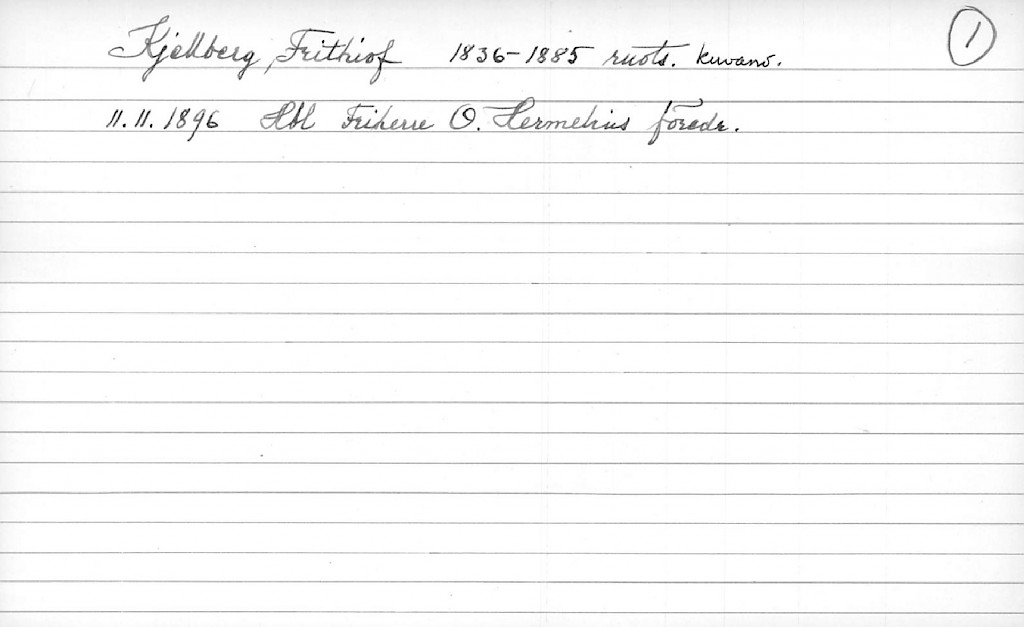 Kjellberg, Frithiof 1836-1885 ruots. kuvanv. 1
11.11.1896 Hbl Friherre O. Hermelins föredr.